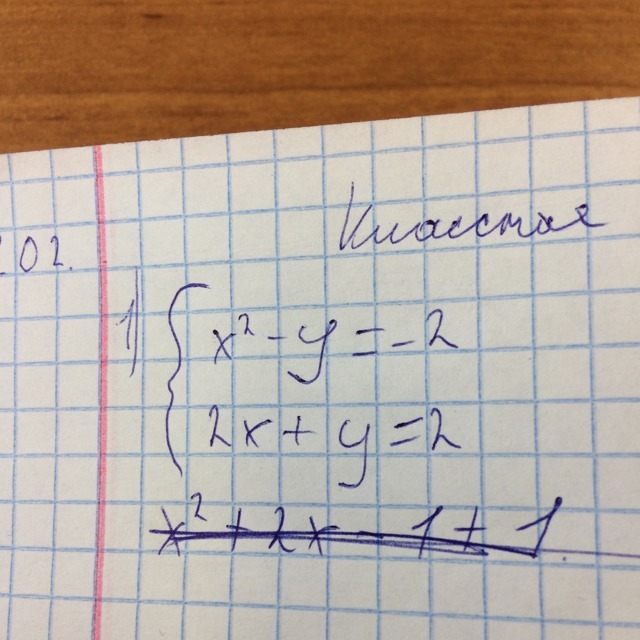 Классная
.02.
1) { x² - y = -2
2x + y = 2
x² + 2x - 1 + 1